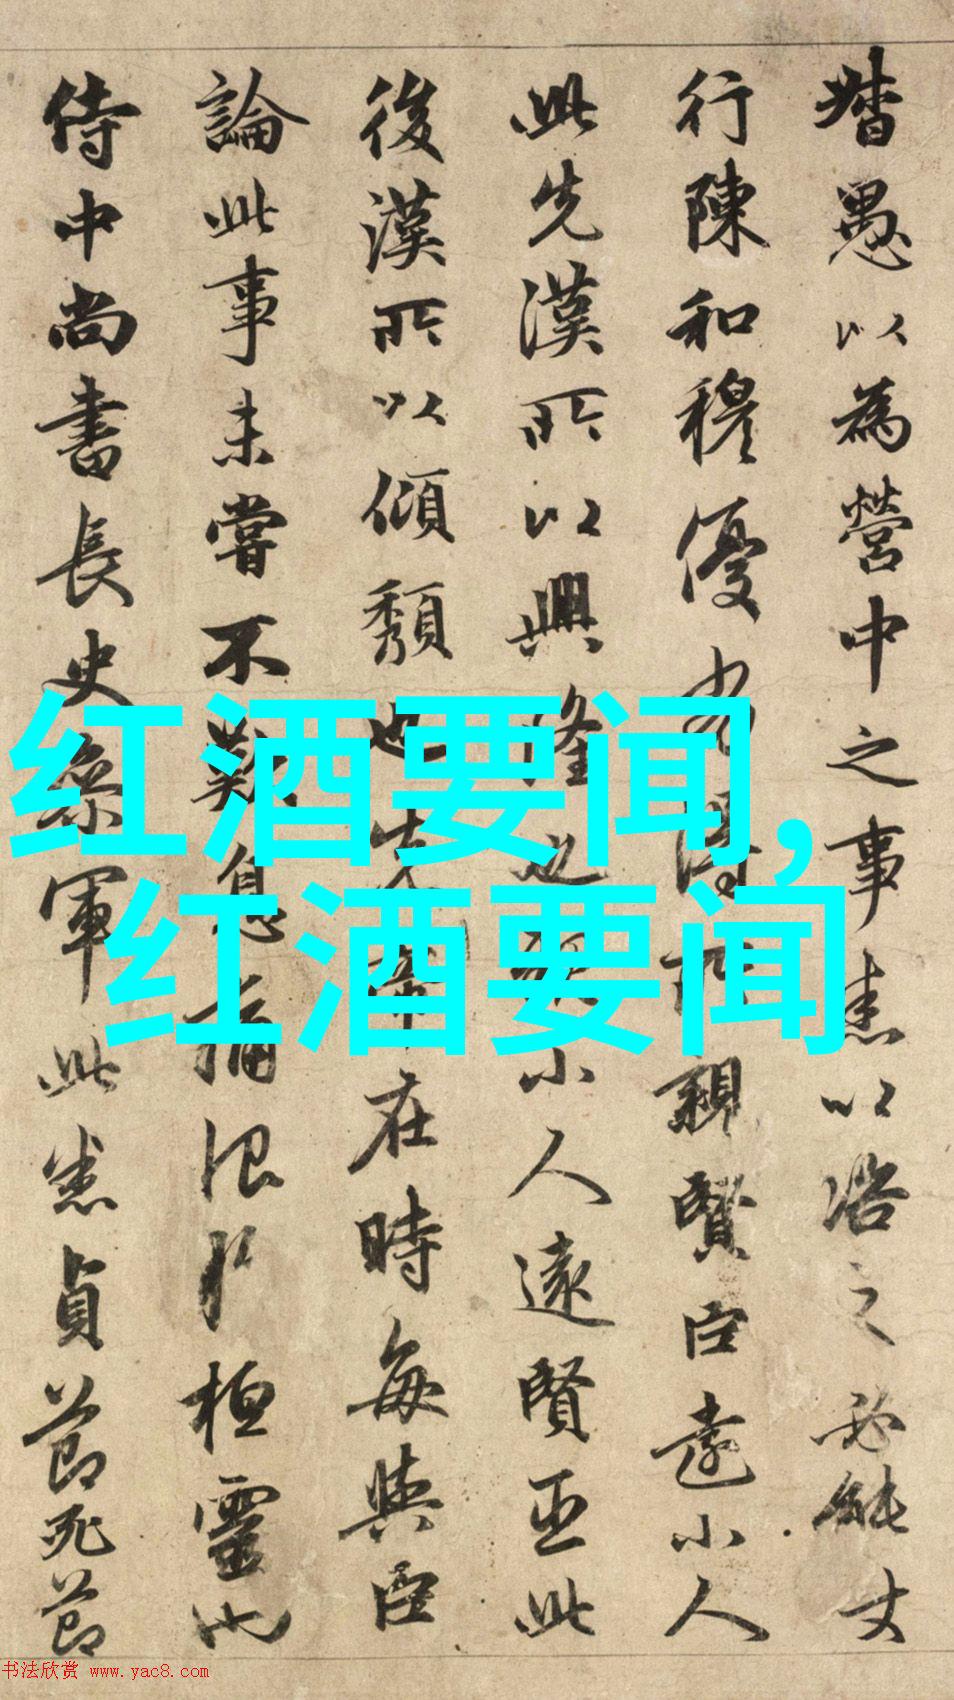 督愚以為營中之事悉以咨之必能丈
行陳和穆優劣得所親賢臣遠小人
此先漢所以興隆也親小人遠賢臣此
後漢所以傾頹也先帝在時每與臣
論此事未嘗不歎息痛恨於桓靈也
侍中尚書長史參軍此悉貞節死節
红酒要闻,
红酒要闻
书法欣赏 www.yac8.com